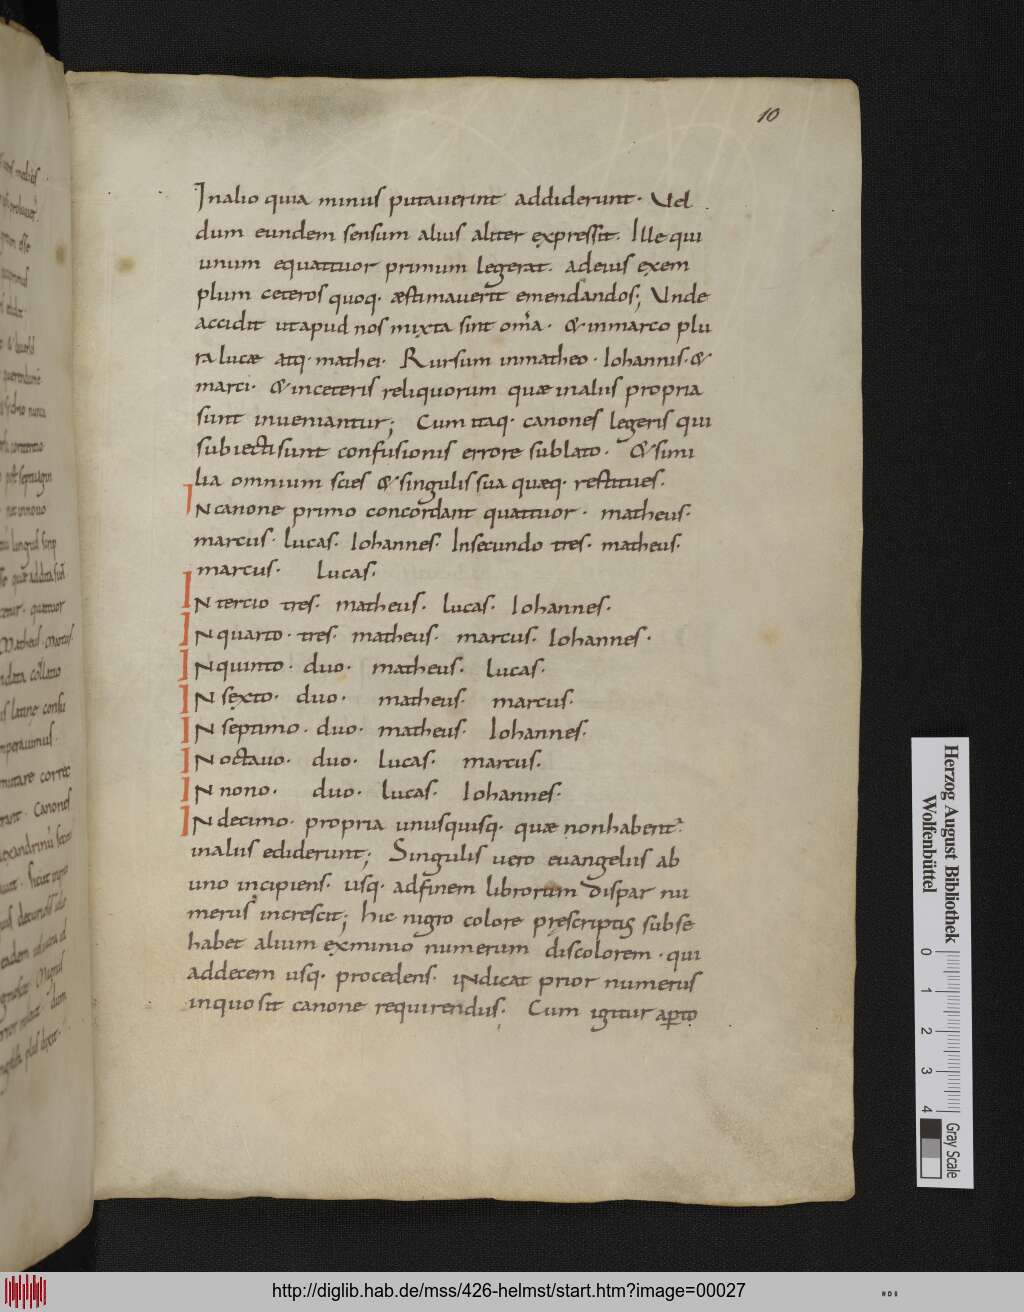 10
In alio quia minus putaverint addiderunt. Vel
dum eundem sensum alius aliter expressit. Ille qui
unum equattuor primum legerat. adeius exem
plum ceteros quoq. æstimaverit emendandos; Unde
accidit utapud nos mixta sint om̅a. & inmarco plu
ra lucæ atq. mathei. Rursum inmatheo. Iohannis. &
marci. & inceteris reliquorum quæ inaliis propria
sunt inveniantur; Cum itaq. canones legeris qui
subiecti sunt confusionis errore sublato. & simi
lia omnium scies & singulis sua quæq. restitues.
IN canone primo concordant quattuor. matheus.
marcus. lucas. Iohannes. Insecundo tres. matheus.
marcus. Lucas.
IN tercio tres. matheus. lucas. Iohannes.
IN quarto. tres. matheus. marcus. Iohannes.
IN quinto. duo. matheus. Lucas.
IN sexto. duo. matheus. marcus.
IN septimo. duo. matheus. Iohannes.
IN octavo. duo. Lucas. marcus.
IN nono. duo. Lucas. Iohannes.
IN decimo. propria unusquisq. quæ nonhabent̉
inaliis ediderunt; Singulis vero evangeliis ab
uno incipiens. usq. adfinem librorum dispar nu
merus increscit; hic nigro colore pręscriptis subse
habet alium exminio numerum discolorem. qui
addecem usq. procedens. iNdicat prior numerus
inquo sit canone requirendus. Cum igitur ap̲to
Herzog August Bibliothek
Wolfenbüttel
0 1 2 3 4
Gray Scale
http://diglib.hab.de/mss/426-helmst/start.htm?image=00027